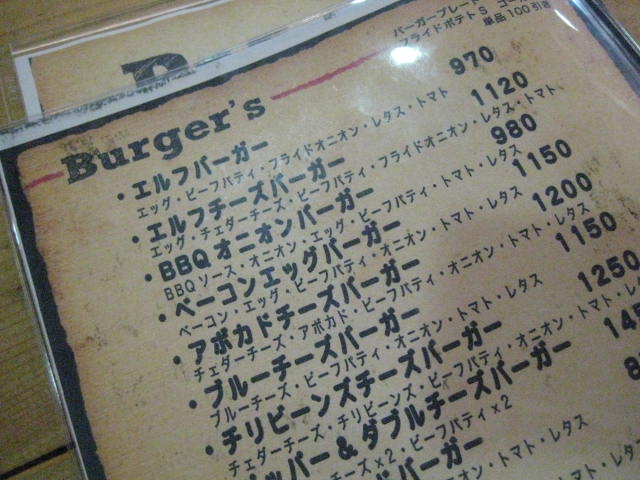 バーガープレート
フライドポテトS
単品100引き
Burger's
・エルフバーガー 970
エッグ・ビーフパティ・フライドオニオン・レタス・トマト
・エルフチーズバーガー 1120
エッグ・チェダーチーズ・ビーフパティ・フライドオニオン・レタス・トマト
・BBQオニオンバーガー 980
BBQソース・オニオン・エッグ・ビーフパティ・トマト・レタス
・ベーコンエッグバーガー 1150
ベーコン・エッグ・ビーフパティ・オニオン・トマト・レタス
・アボカドチーズバーガー 1200
チェダーチーズ・アボカド・ビーフパティ・オニオン・トマト・レタス
・ブルーチーズバーガー 1150
ブルーチーズ・ビーフパティ・オニオン・トマト・レタス
・チリビーンズチーズバーガー 1250
チェダーチーズ・チリビーンズ・ビーフパティ・オニオン・トマト・レタ
ッパー&ダブルチーズバーガー 145
チーズ×2・ビーフパティ×2
バーガー 8
オニオン・トマト・レタス